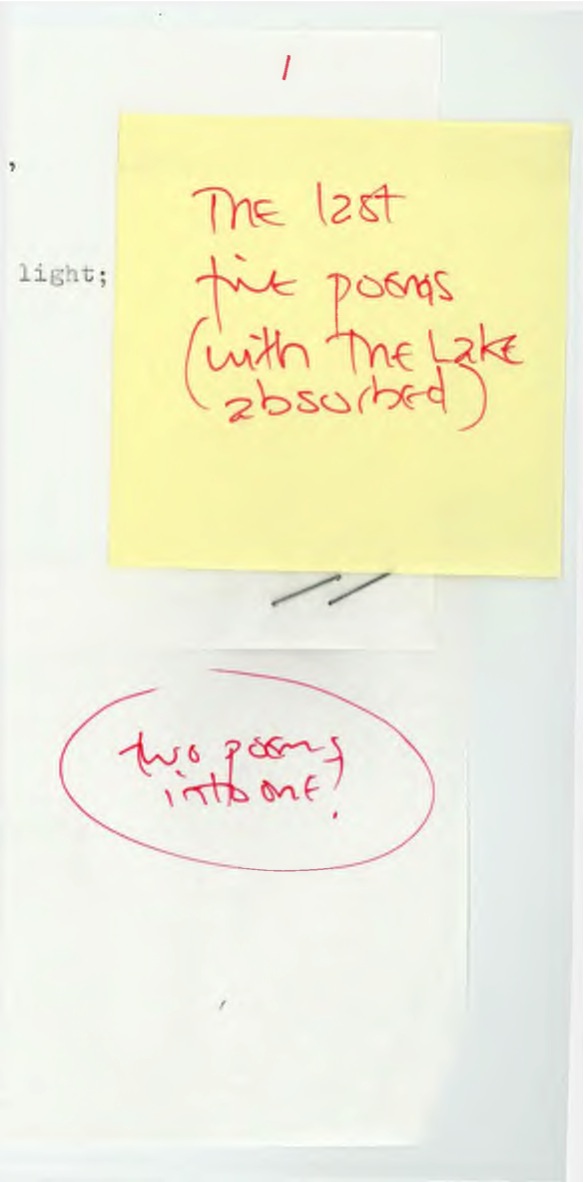 1
,
The last
light;
five poems
(with The Lake
absorbed)
two poems
into one!